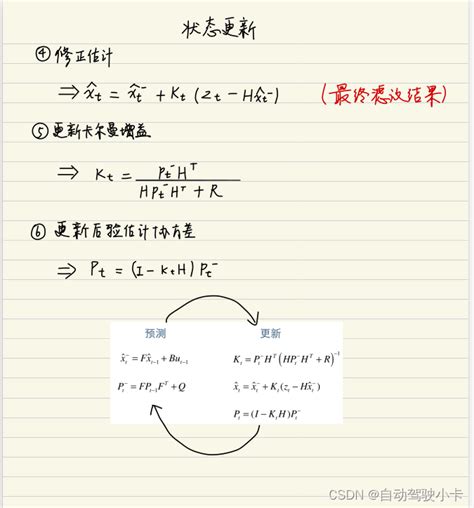 状态更新
④ 修正估计
⇒ x̂t = x̂t⁻ + Kt (zt − Hx̂t⁻) (最终滤波结果)
⑤ 更新卡尔曼增益
⇒ Kt = Pt⁻Hᵀ / HPt⁻Hᵀ + R
⑥ 更新后验估计协方差
⇒ Pt = (I − KtH) Pt⁻
预测 更新
x̂t⁻ = Fx̂t−1 + But−1 Kt = Pt⁻Hᵀ(HPt⁻Hᵀ + R)⁻¹
Pt⁻ = FPt−1Fᵀ + Q x̂t = x̂t⁻ + Kt(zt − Hx̂t⁻)
Pt = (I − KtH)Pt⁻
CSDN @自动驾驶小卡